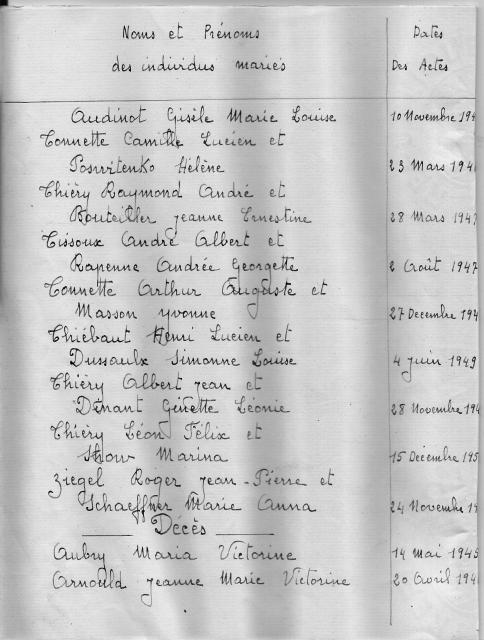 Noms et Prénoms Dates
des individus mariés Des Actes
Audinot Gisèle Marie Louise 10 Novembre 194
Tonnette Camille Lucien et
Hélène 23 Mars 194
Thiéry Raymond André et
Bouteiller Jeanne Ernestine 28 Mars 1947
Tissoux André Albert et
Rapenne Andrée Georgette 2 Août 1947
Tonnette Arthur Auguste et
Masson Yvonne 27 Decembre 194
Thiébaut Henri Lucien et
Dussaulx Simonne Louise 4 Juin 1949
Thiéry Albert Jean et
Dinant Ginette Léonie 28 Novembre 194
Thiéry Léon Félix et
Marina 15 Décembre 195
Ziegel Roger Jean-Pierre et
Schaeffner Marie Anna 24 Novembre 19
Décès
Aubry Maria Victorine 14 Mai 1945
Arnould Jeanne Marie Victorine 20 Avril 194